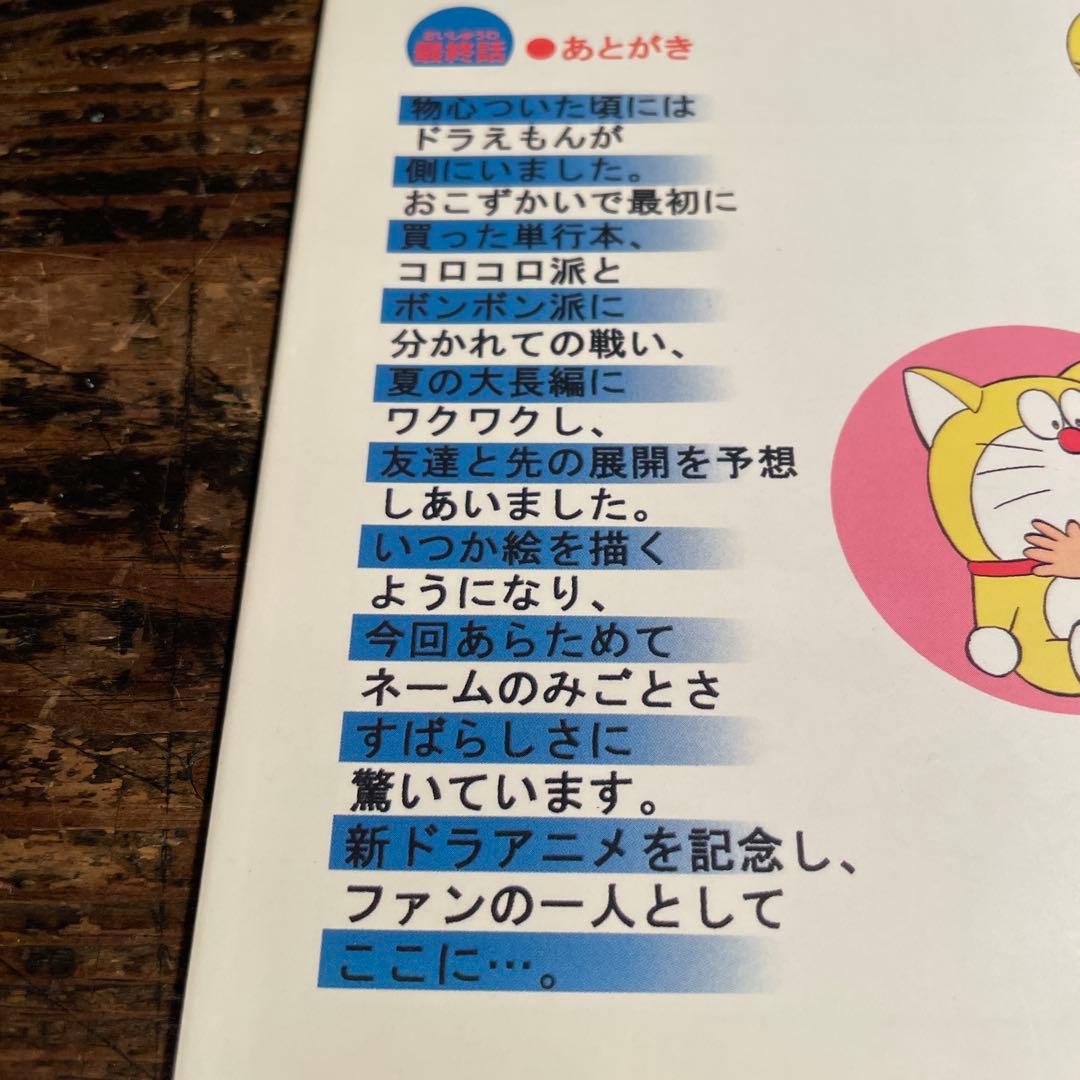 さいしゅうわ
最終話
●あとがき
物心ついた頃には
ドラえもんが
側にいました。
おこずかいで最初に
買った単行本、
コロコロ派と
ボンボン派に
分かれての戦い、
夏の大長編に
ワクワクし、
友達と先の展開を予想
しあいました。
いつか絵を描く
ようになり、
今回あらためて
ネームのみごとさ
すばらしさに
驚いています。
新ドラアニメを記念し、
ファンの一人として
ここに…。